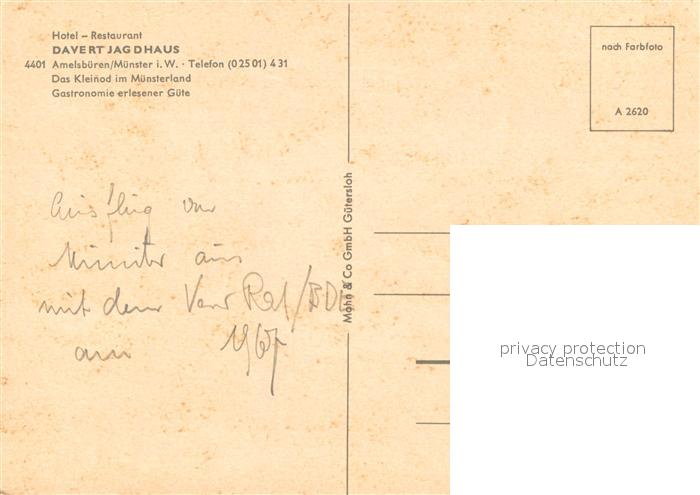 Hotel – Restaurant
DAVERT JAGDHAUS
4401 Amelsbüren/Münster i.W. · Telefon (0 25 01) 4 31
Das Kleinod im Münsterland
Gastronomie erlesener Güte
nach Farbfoto
A 2620
Mohn & Co GmbH Gütersloh
Ausflug von
Münster aus
mit dem
am 1967
privacy protection
Datenschutz